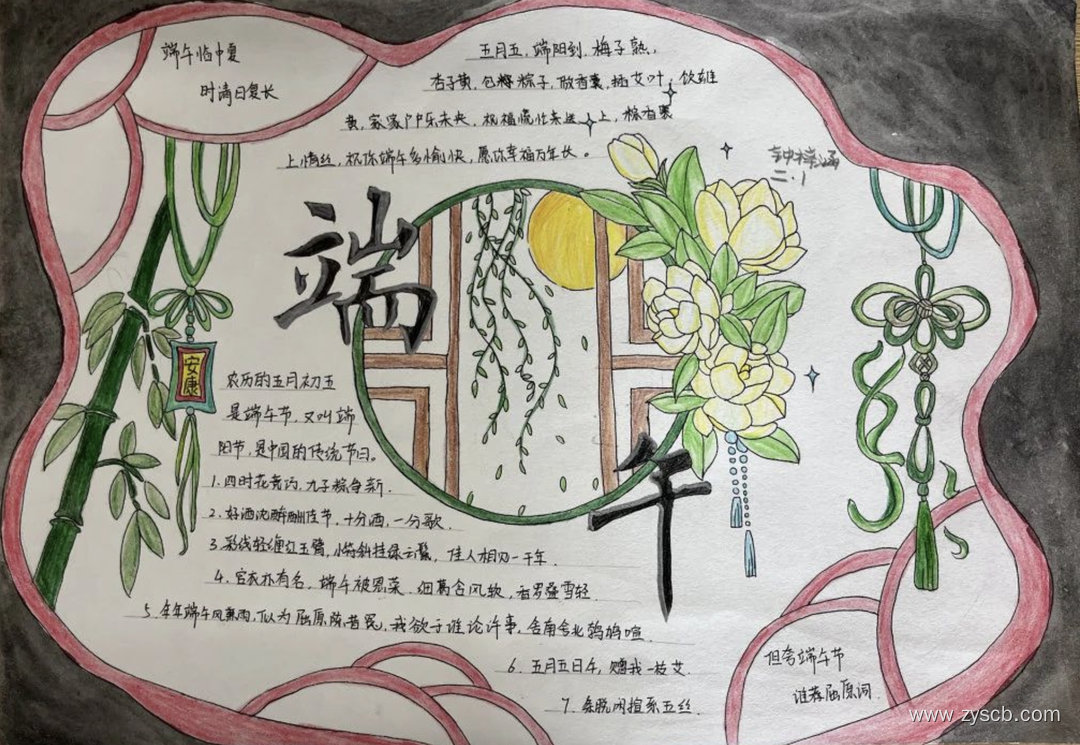 端午临中夏
时清日复长
五月五，端阳到，梅子熟，
杏子黄，包粽粽子，放香囊，插艾叶，饮雄
黄，家家户户乐未央，祝福慌忙来送上，粽香裹
上情丝，祝你端午多愉快，愿你幸福万年长。
二.1
端
午
安康
农历的五月初五
是端午节，又叫端
阳节，是中国的传统节日。
1.四时花竞巧，九子粽争新.
2.好酒沈醉酬佳节，十分酒，一分歌.
3.彩线轻缠红玉臂，小符斜挂绿云鬟，佳人相见一千年.
4.宫衣亦有名，端午被恩荣.细葛含风软，香罗叠雪轻.
5.今年端午风兼雨，似为屈原陈昔冤，我欲于谁论许事，舍南舍北鹁鸠喧.
6.五月五日午，赠我一枝艾.
7.系五丝.
但夸端午节
谁荐屈原词.
www.zyscb.com